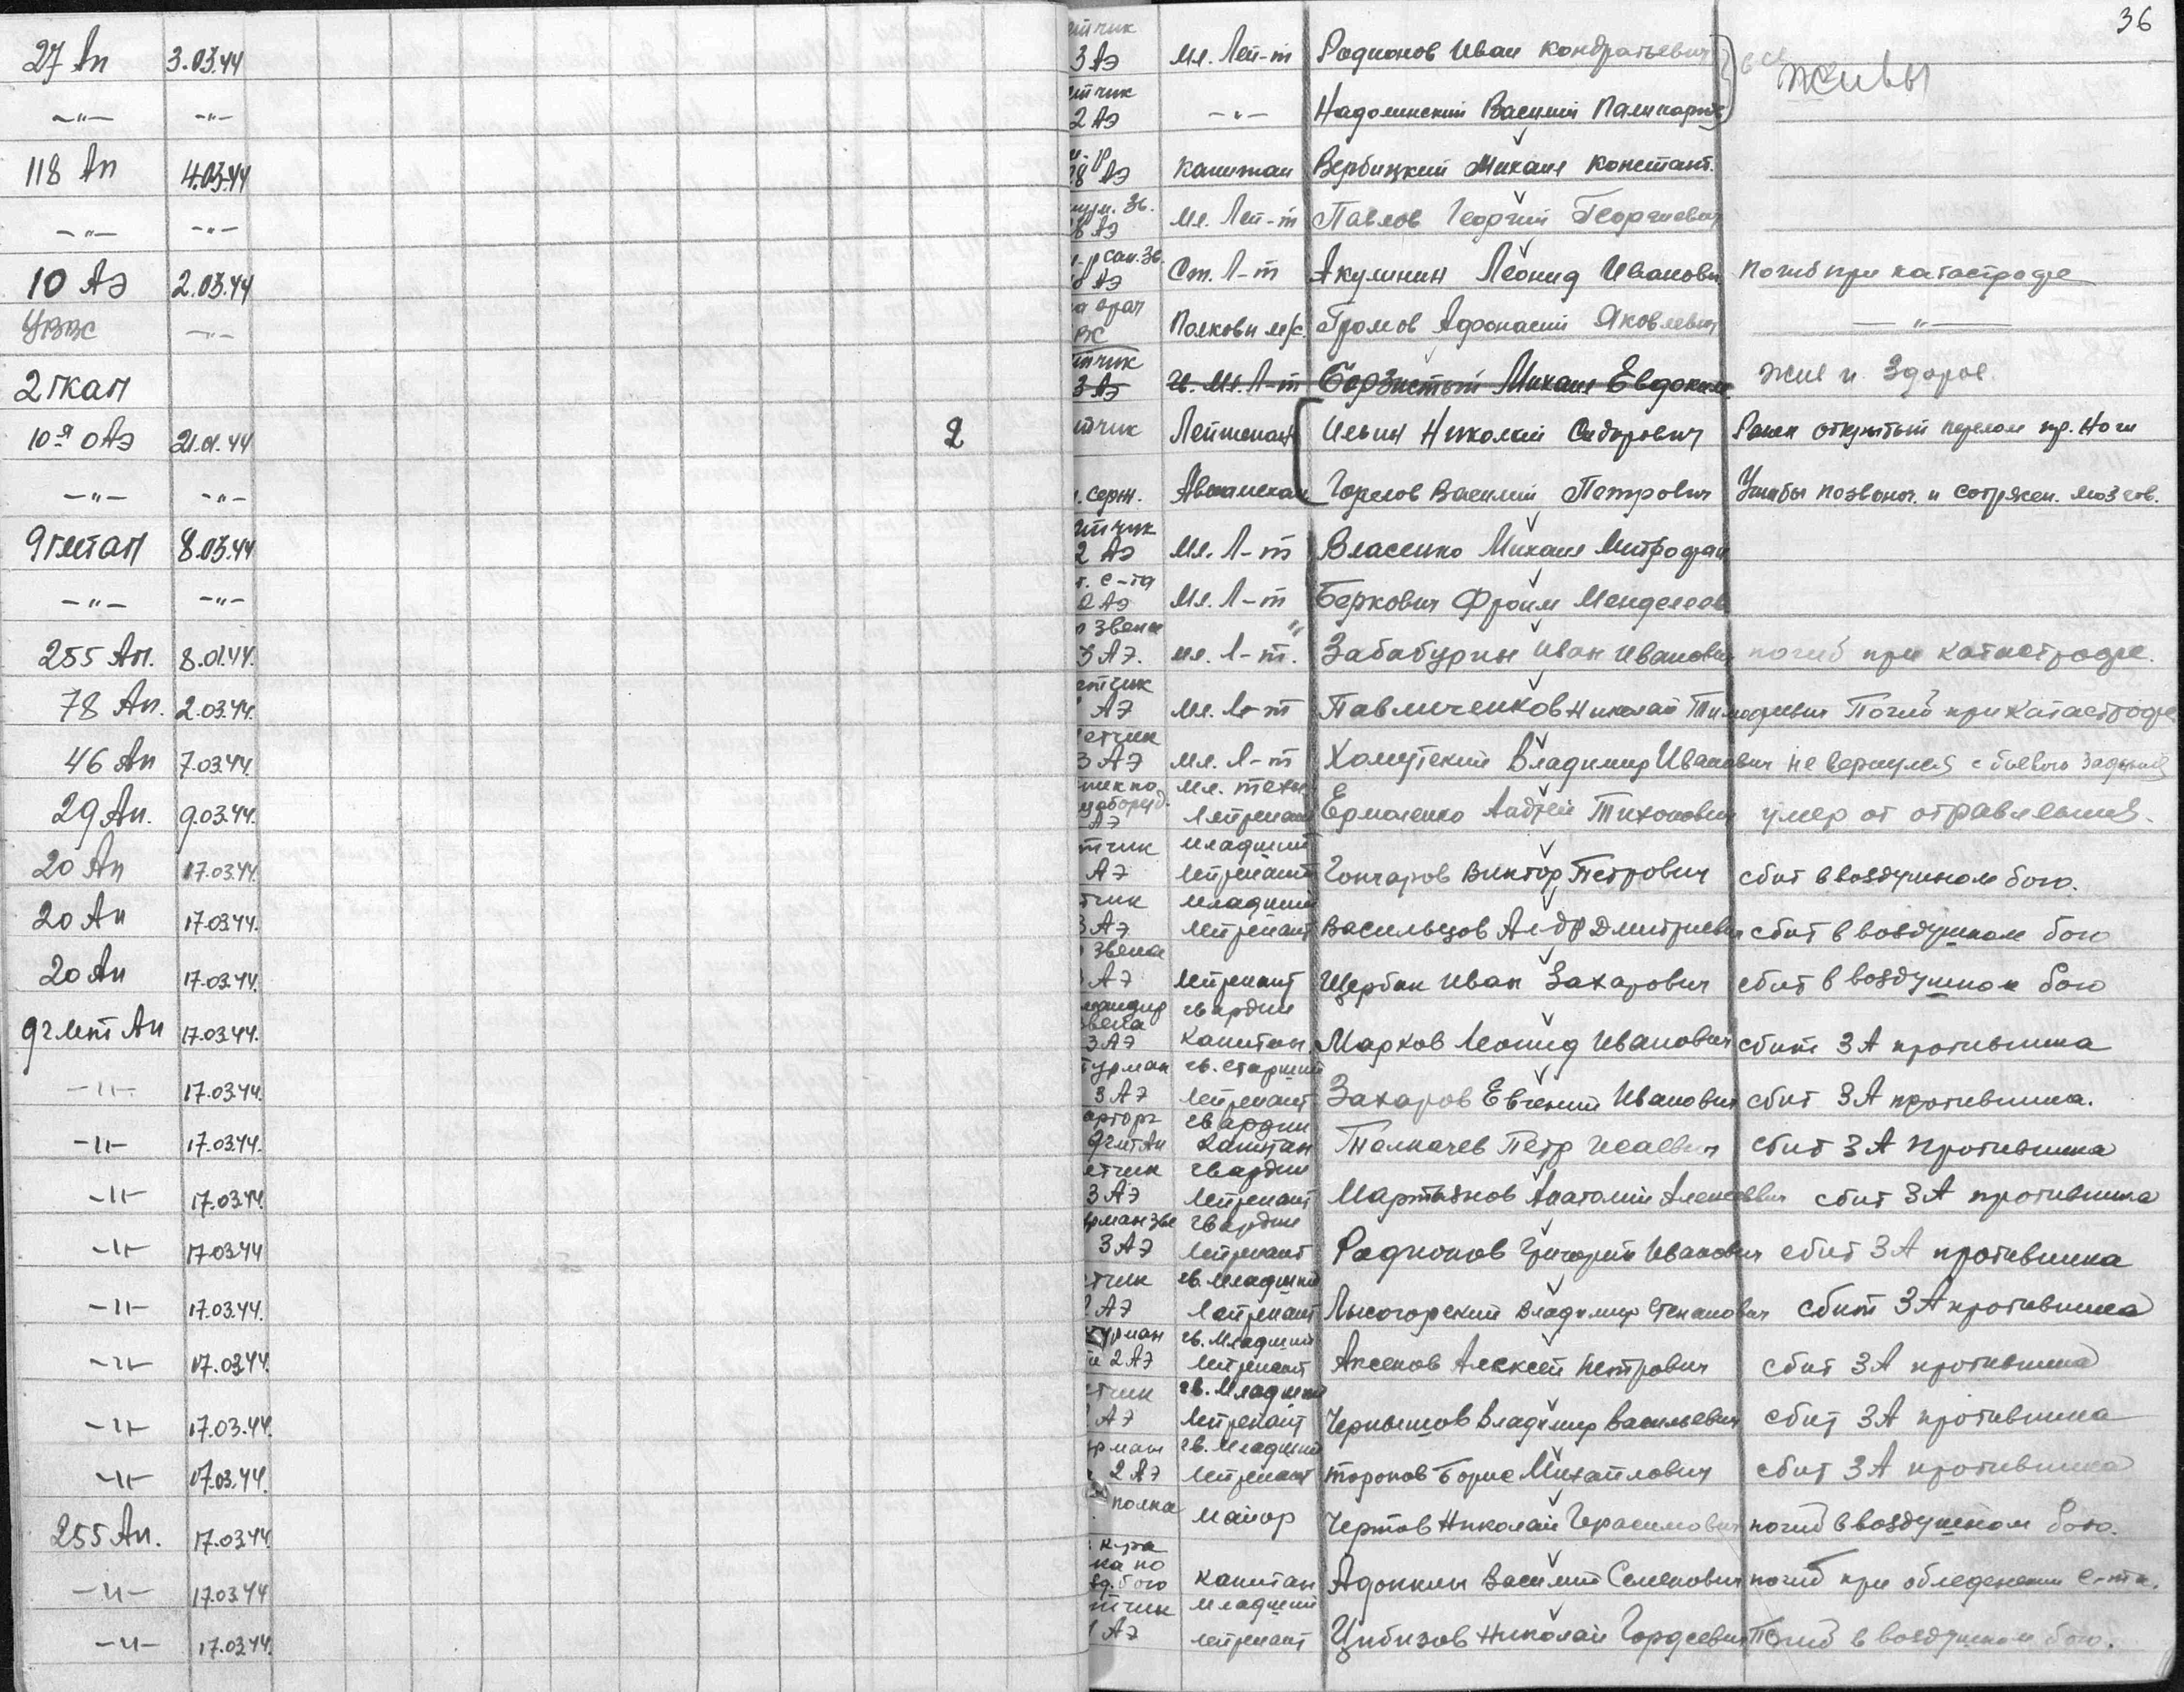 36
27 Ап 3.03.44 3 АЭ Мл. Лей-т Родионов Иван Кондратьевич все живы
—"— —"— 2 АЭ —"— Надолинский Василий
118 Ап 4.03.44 АЭ Капитан Вербицкий Михаил Констант.
—"— —"— АЭ Мл. Лей-т Павлов Георгий Георгиевич
10 АЭ 2.03.44 АЭ Ст. Л-т Акулинин Леонид Иванович погиб при катастрофе
УВВС —"— Полковн м/с. Громов Афонасий Яковлевич —"—
2 гкап 3 АЭ гв. Мл. Л-т Борзистый Михаил Евдоким. жив и здоров.
10-я оАЭ 21.01.44 2 Лейтенант Ильин Николай Сидорович Ранен открытый перелом пр. ноги
—"— —"— серж. Горелов Василий Петрович Ушибы позвоноч. и сотрясен. мозгов.
9 гмтап 8.03.44 2 АЭ Мл. Л-т Власенко Михаил Митрофан
—"— —"— 2 АЭ Мл. Л-т Беркович Фроим Менделеев
255 Ап. 8.01.44. звена 3 АЭ. мл. Л-т. Забабурин Иван Иванович погиб при катастрофе.
78 Ап. 2.03.44. АЭ Мл. Л-т Павличенков Николай Тимофеевич Погиб при катастрофе
46 Ап 7.03.44. 3 АЭ Мл. Л-т Хомутский Владимир Иванович не вернулся с боевого задания
29 Ап. 9.03.44. АЭ Мл. техн. Лейтенант Ермоленко Андрей Тихонович умер от отравления.
20 Ап 17.03.44. АЭ младший лейтенант Гончаров Виктор Петрович сбит в воздушном бою.
20 Ап 17.03.44. 3 АЭ младший лейтенант Васильцов Ал-др Дмитриевич сбит в воздушном бою
20 Ап 17.03.44. звена АЭ лейтенант Щербак Иван Захарович сбит в воздушном бою
9 гмт Ап 17.03.44. звена 3 АЭ гвардии капитан Марков Леонид Иванович сбит ЗА противника
—"— 17.03.44. 3 АЭ гв. старший лейтенант Захаров Евгений Иванович сбит ЗА противника.
—"— 17.03.44. 9 гмт Ап гвардии капитан Толкачев Петр Исаевич сбит ЗА противника
—"— 17.03.44. 3 АЭ гвардии лейтенант Мартьянов Анатолий Алексеевич сбит ЗА противника
—"— 17.03.44 3 АЭ гвардии лейтенант Родионов Григорий Иванович сбит ЗА противника
—"— 17.03.44. АЭ гв. младший лейтенант Лысогорский Владимир Степанович сбит ЗА противника
—"— 17.03.44. 2 АЭ гв. младший лейтенант Аксенов Алексей Петрович сбит ЗА противника
—"— 17.03.44. АЭ гв. младший лейтенант Чернышов Владимир Васильевич сбит ЗА противника
—"— 17.03.44. 2 АЭ гв. младший лейтенант Торопов Борис Михайлович сбит ЗА противника
255 Ап. 17.03.44. полка майор Чертов Николай Герасимович погиб в воздушном бою.
—"— 17.03.44 капитан Адонкин Василий Семенович погиб при обледенении с-та.
—"— 17.03.44. АЭ младший лейтенант Цибизов Николай Гордеевич Погиб в воздушном бою.